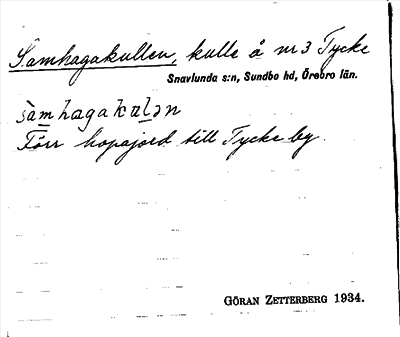 Samhagakullen, kulle å nr 3 Tycke
Snavlunda s:n, Sundbo hd, Örebro län.
sàmhagakulən
Förr hopajord till Tycke by.
GÖRAN ZETTERBERG 1934.